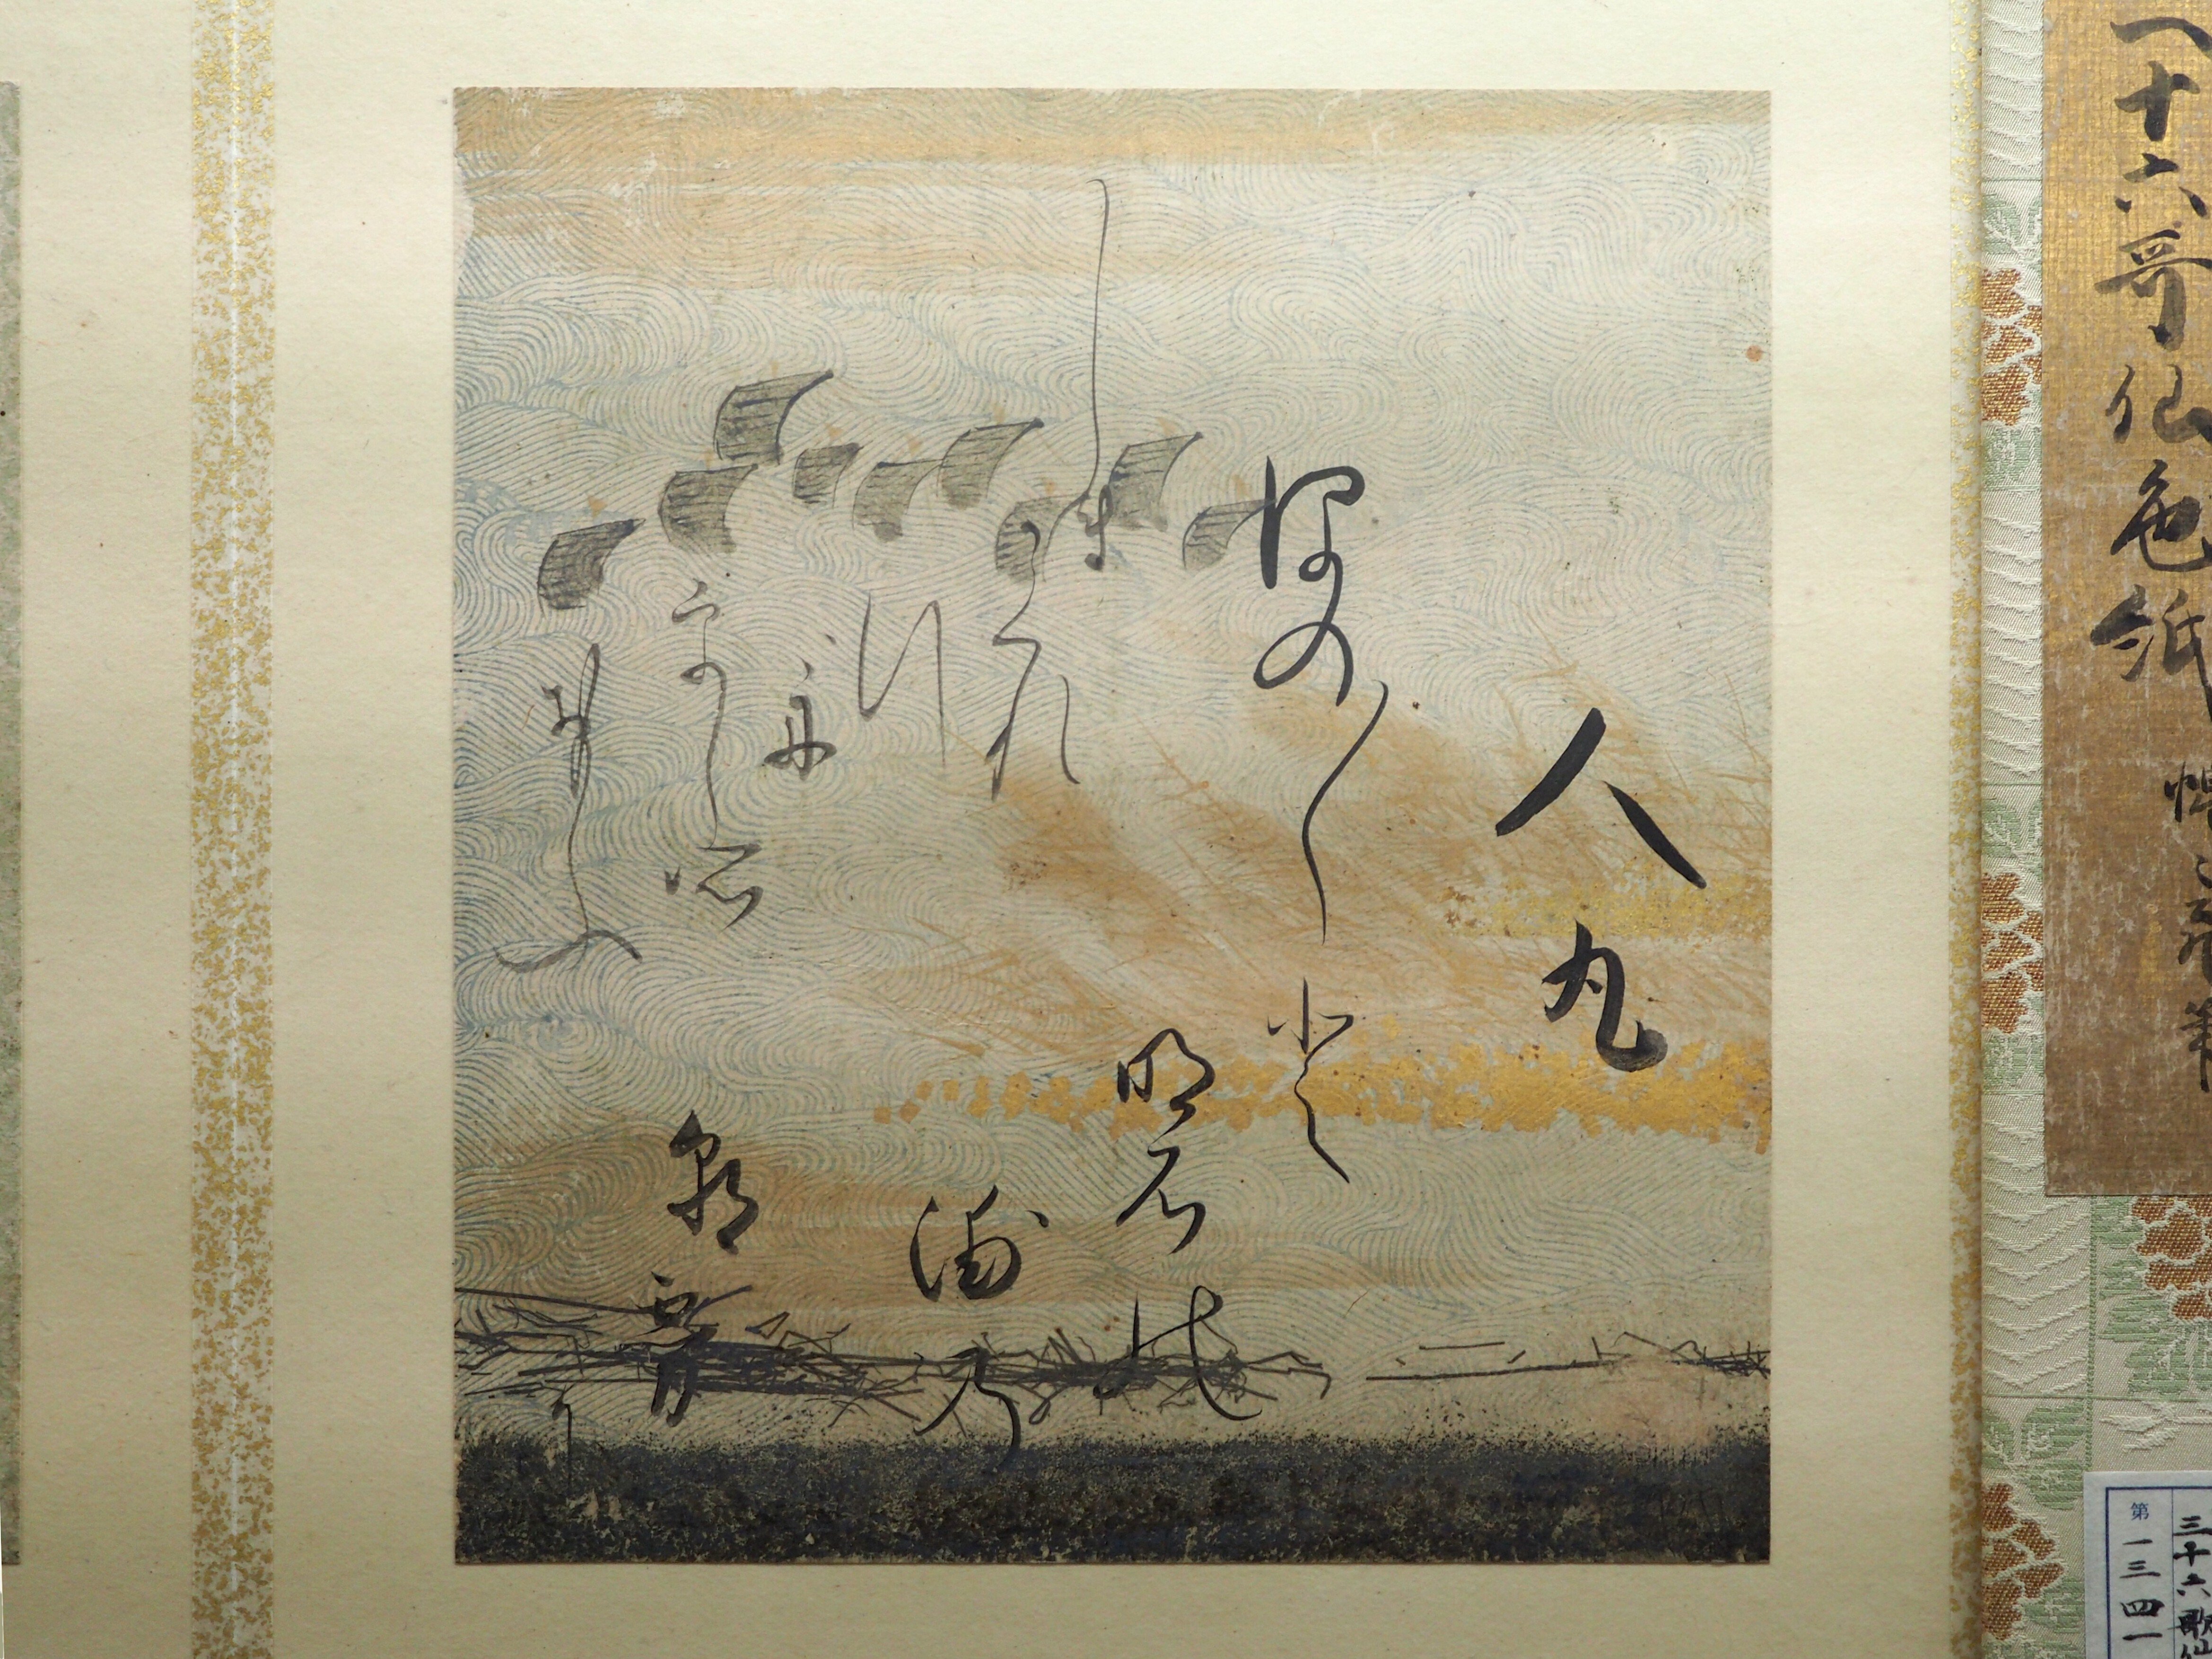 十六哥仙色紙
三十六歌仙
第一三四一
人丸
ほの〱と
明石の
浦の
朝霧
に
しま
かくれ
行
舟
をしそ
おもふ